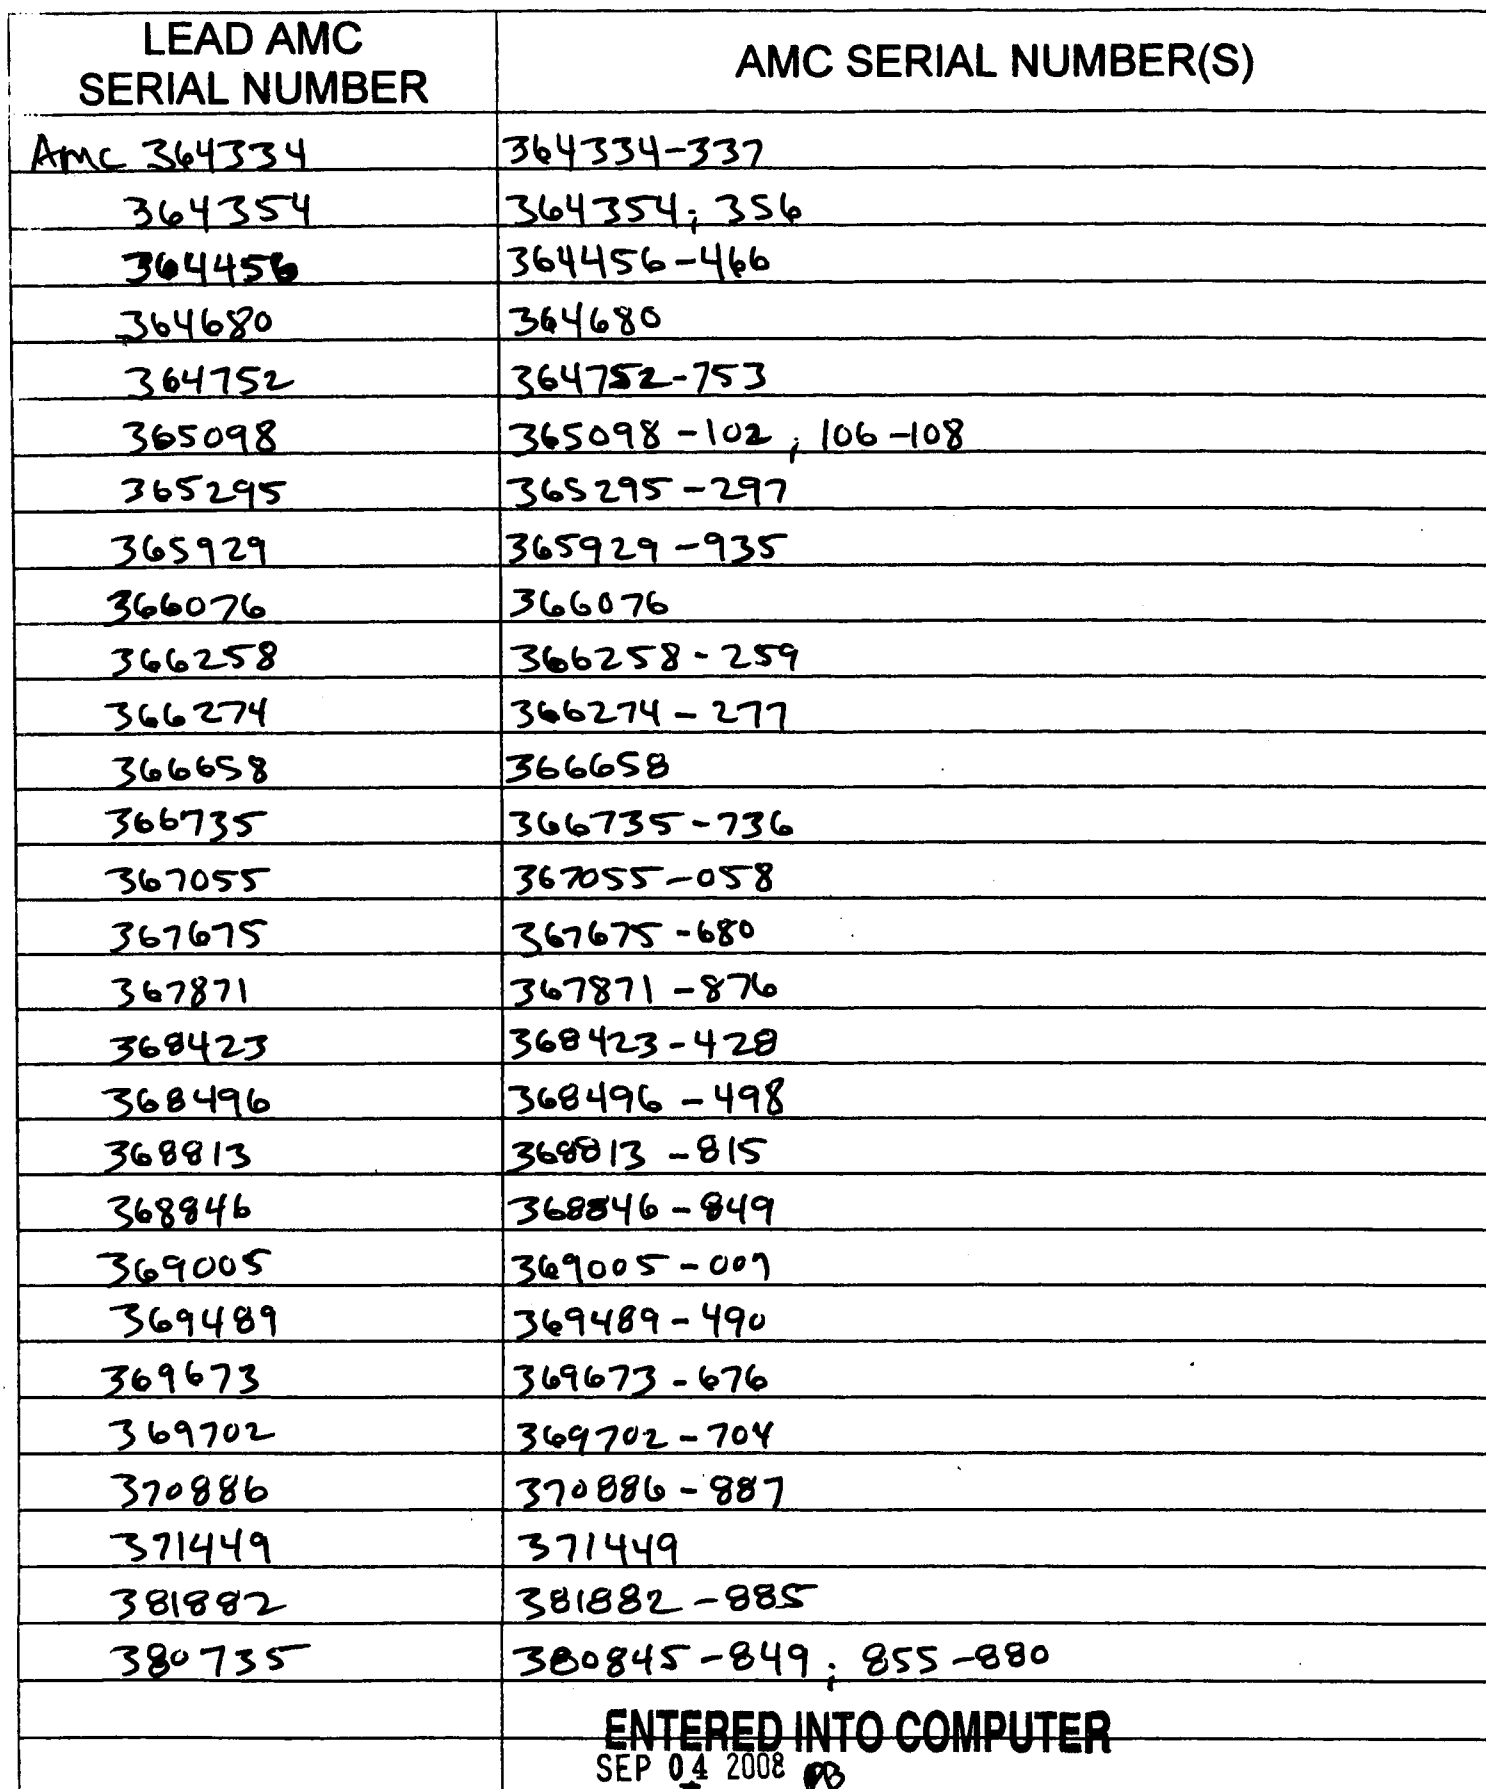 LEAD AMC
SERIAL NUMBER
AMC SERIAL NUMBER(S)
Amc 364334 364334-337
364354 364354; 356
364456 364456-466
364680 364680
364752 364752-753
365098 365098-102; 106-108
365295 365295-297
365929 365929-935
366076 366076
366258 366258-259
366274 366274-277
366658 366658
366735 366735-736
367055 367055-058
367675 367675-680
367871 367871-876
368423 368423-428
368496 368496-498
368813 368813-815
368846 368846-849
369005 369005-009
369489 369489-490
369673 369673-676
369702 369702-704
370886 370886-887
371449 371449
381882 381882-885
380735 380845-849; 855-880
ENTERED INTO COMPUTER
SEP 04 2008